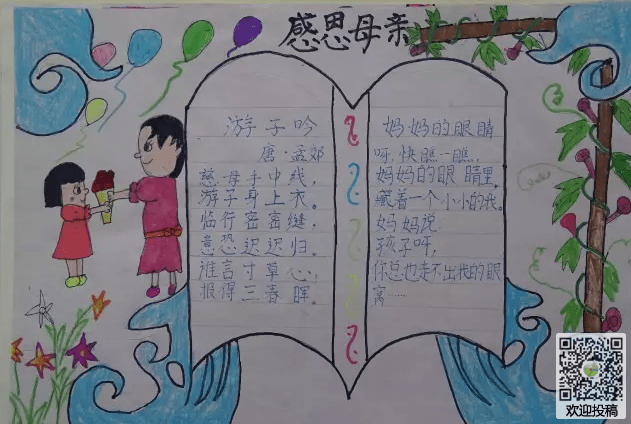 感恩母亲
游子吟
唐·孟郊
慈母手中线，
游子身上衣。
临行密密缝，
意恐迟迟归。
谁言寸草心，
报得三春晖。
妈妈的眼睛
呀，快瞧一瞧，
妈妈的眼睛里，
藏着一个小小的我。
妈妈说：
孩子呀，
你总也走不出我的眼
窝……
欢迎投稿